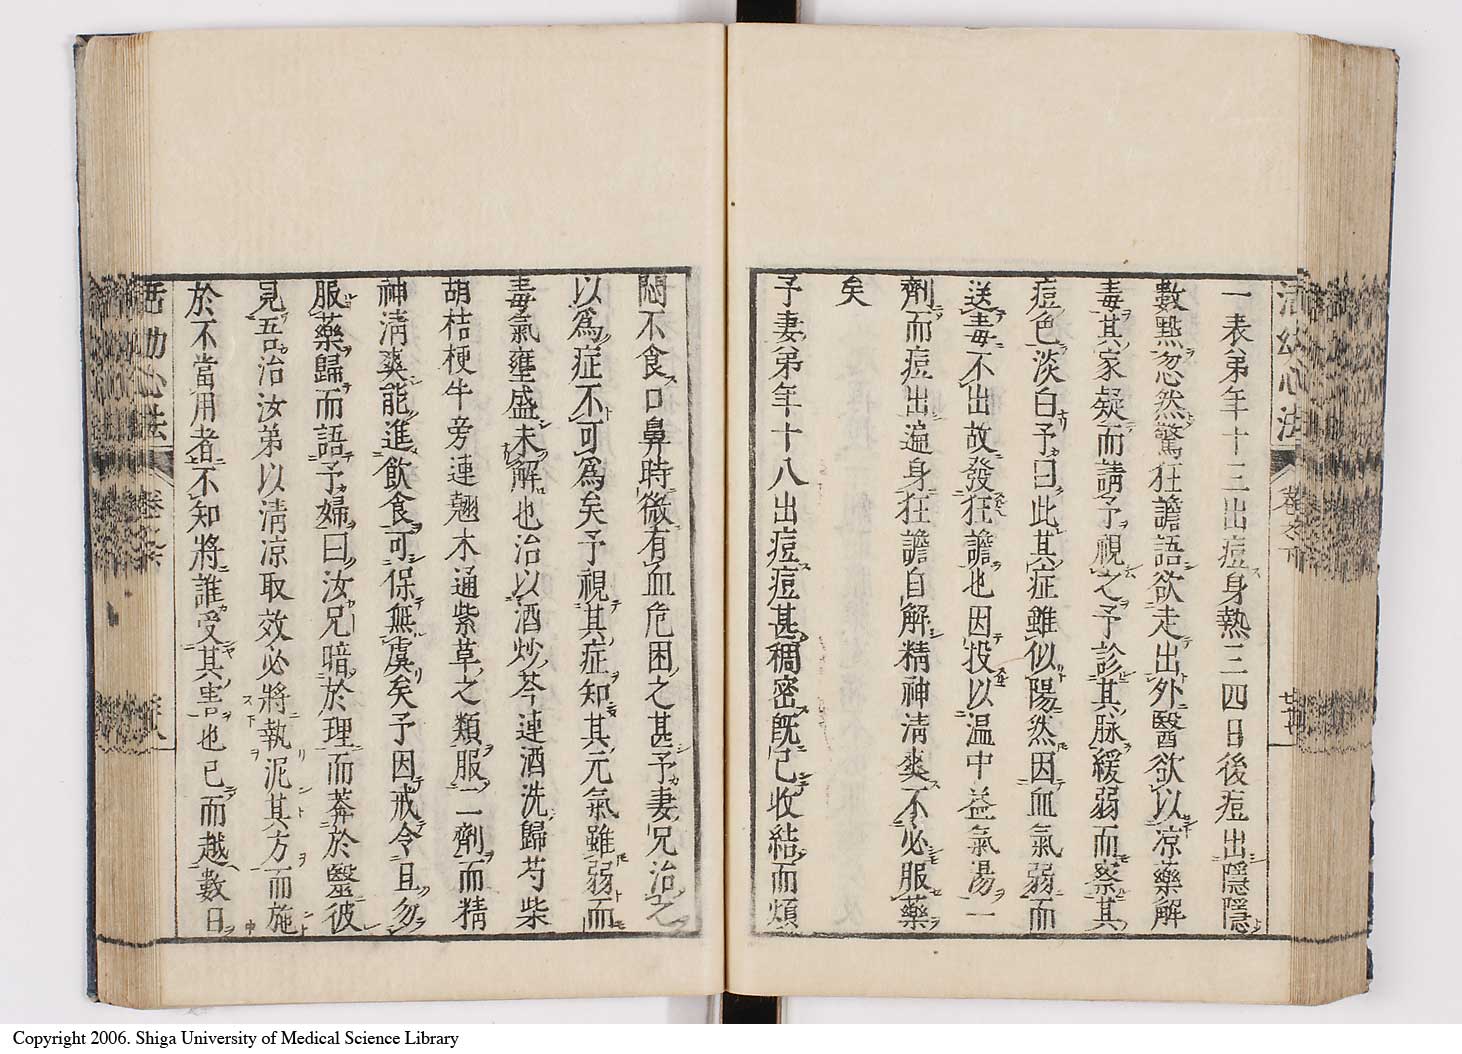 活幼心法
卷之下
一表弟年十三出痘身熱三四日後痘出隱隱
數㸃忽然驚狂譫語欲走出外醫欲以凉藥解
毒其家疑而請予視之予診其脉緩弱而察其
痘色淡白予曰此其症雖似陽然因血氣弱而
送毒不出故發狂譫也因投以温中益氣湯一
劑而痘出遍身狂譫自解精神清爽不必服藥
矣
予妻弟年十八出痘痘甚稠密旣已收結而煩
悶不食口鼻時微有血危困之甚予妻兄治之
以為症不可為矣予視其症知其元氣雖弱而
毒氣壅盛未解也治以酒炒芩連酒洗歸芍柴
胡桔梗牛旁連翹木通紫草之類服一劑而精
神清爽能進飲食可保無虞矣予因戒令且勿
服藥歸而語予婦曰汝兄暗於理而莽於醫彼
見吾治汝弟以清凉取效必將執泥其方而施
於不當用者不知將誰受其害也已而越數日
活幼心法